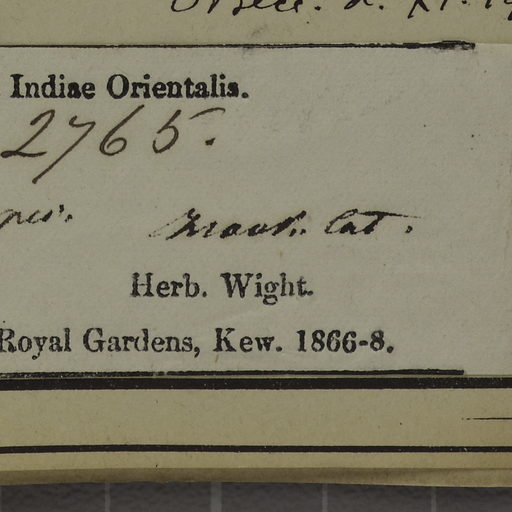 Indiae Orientalis.
2765.
Cat.
Herb. Wight.
Royal Gardens, Kew. 1866-8.